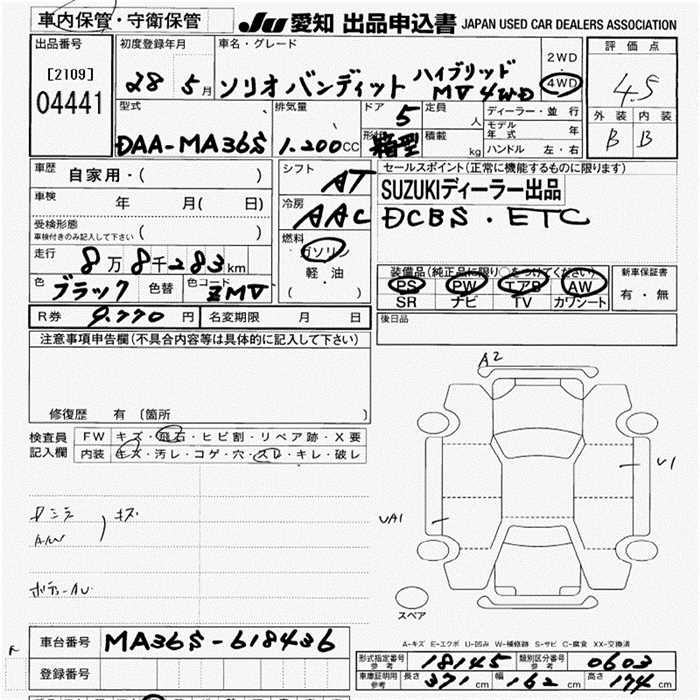 車内保管・守衛保管
JU 愛知 出品申込書 JAPAN USED CAR DEALERS ASSOCIATION
出品番号 初度登録年月 車名・グレード 2WD・4WD 評価点
[2109] 04441 28 5月 ソリオ バンディット ハイブリッド MV 4WD 4.5
型式 排気量 ドア 定員 ディーラー・並行 外装 内装
DAA-MA36S 1.200CC 5 人 モデル年式 年 B B
形状 箱型 積載 kg ハンドル 左・右
車歴 自家用・( ) シフト AT セールスポイント(正常に機能するものに限ります)
SUZUKIディーラー出品
車検 年 月( 日) 冷房 AAC DCBS・ETC
受検形態 車検付きのみ記入して下さい ( )
燃料 ガソリン 軽・油 ( )
走行 8万8千283km 装備品(純正品に限り○をつけてください) 新車保証書
色 ブラック 色替 色コード ZMV PS PW エアB AW 有・無
SR ナビ TV カワシート
R券 9.770円 名変期限 月 日 後日品
注意事項申告欄(不具合内容等は具体的に記入して下さい)
修復歴 有 (箇所 )
A2
検査員記入欄 FW キズ・飛石・ヒビ割・リペア跡・X要
内装 キズ・汚レ・コゲ・穴・スレ・キレ・破レ
U1
UA1
A/W キズ
スペア
A-キズ E-エクボ U-凹み W-補修跡 S-サビ C-腐食 XX-交換済
車台番号 MA36S-618436
形式指定番号 参考 18145 類別区分番号 参考 0603
登録番号
車庫証明用 参考 長さ 371cm 幅 162cm 高さ 174cm